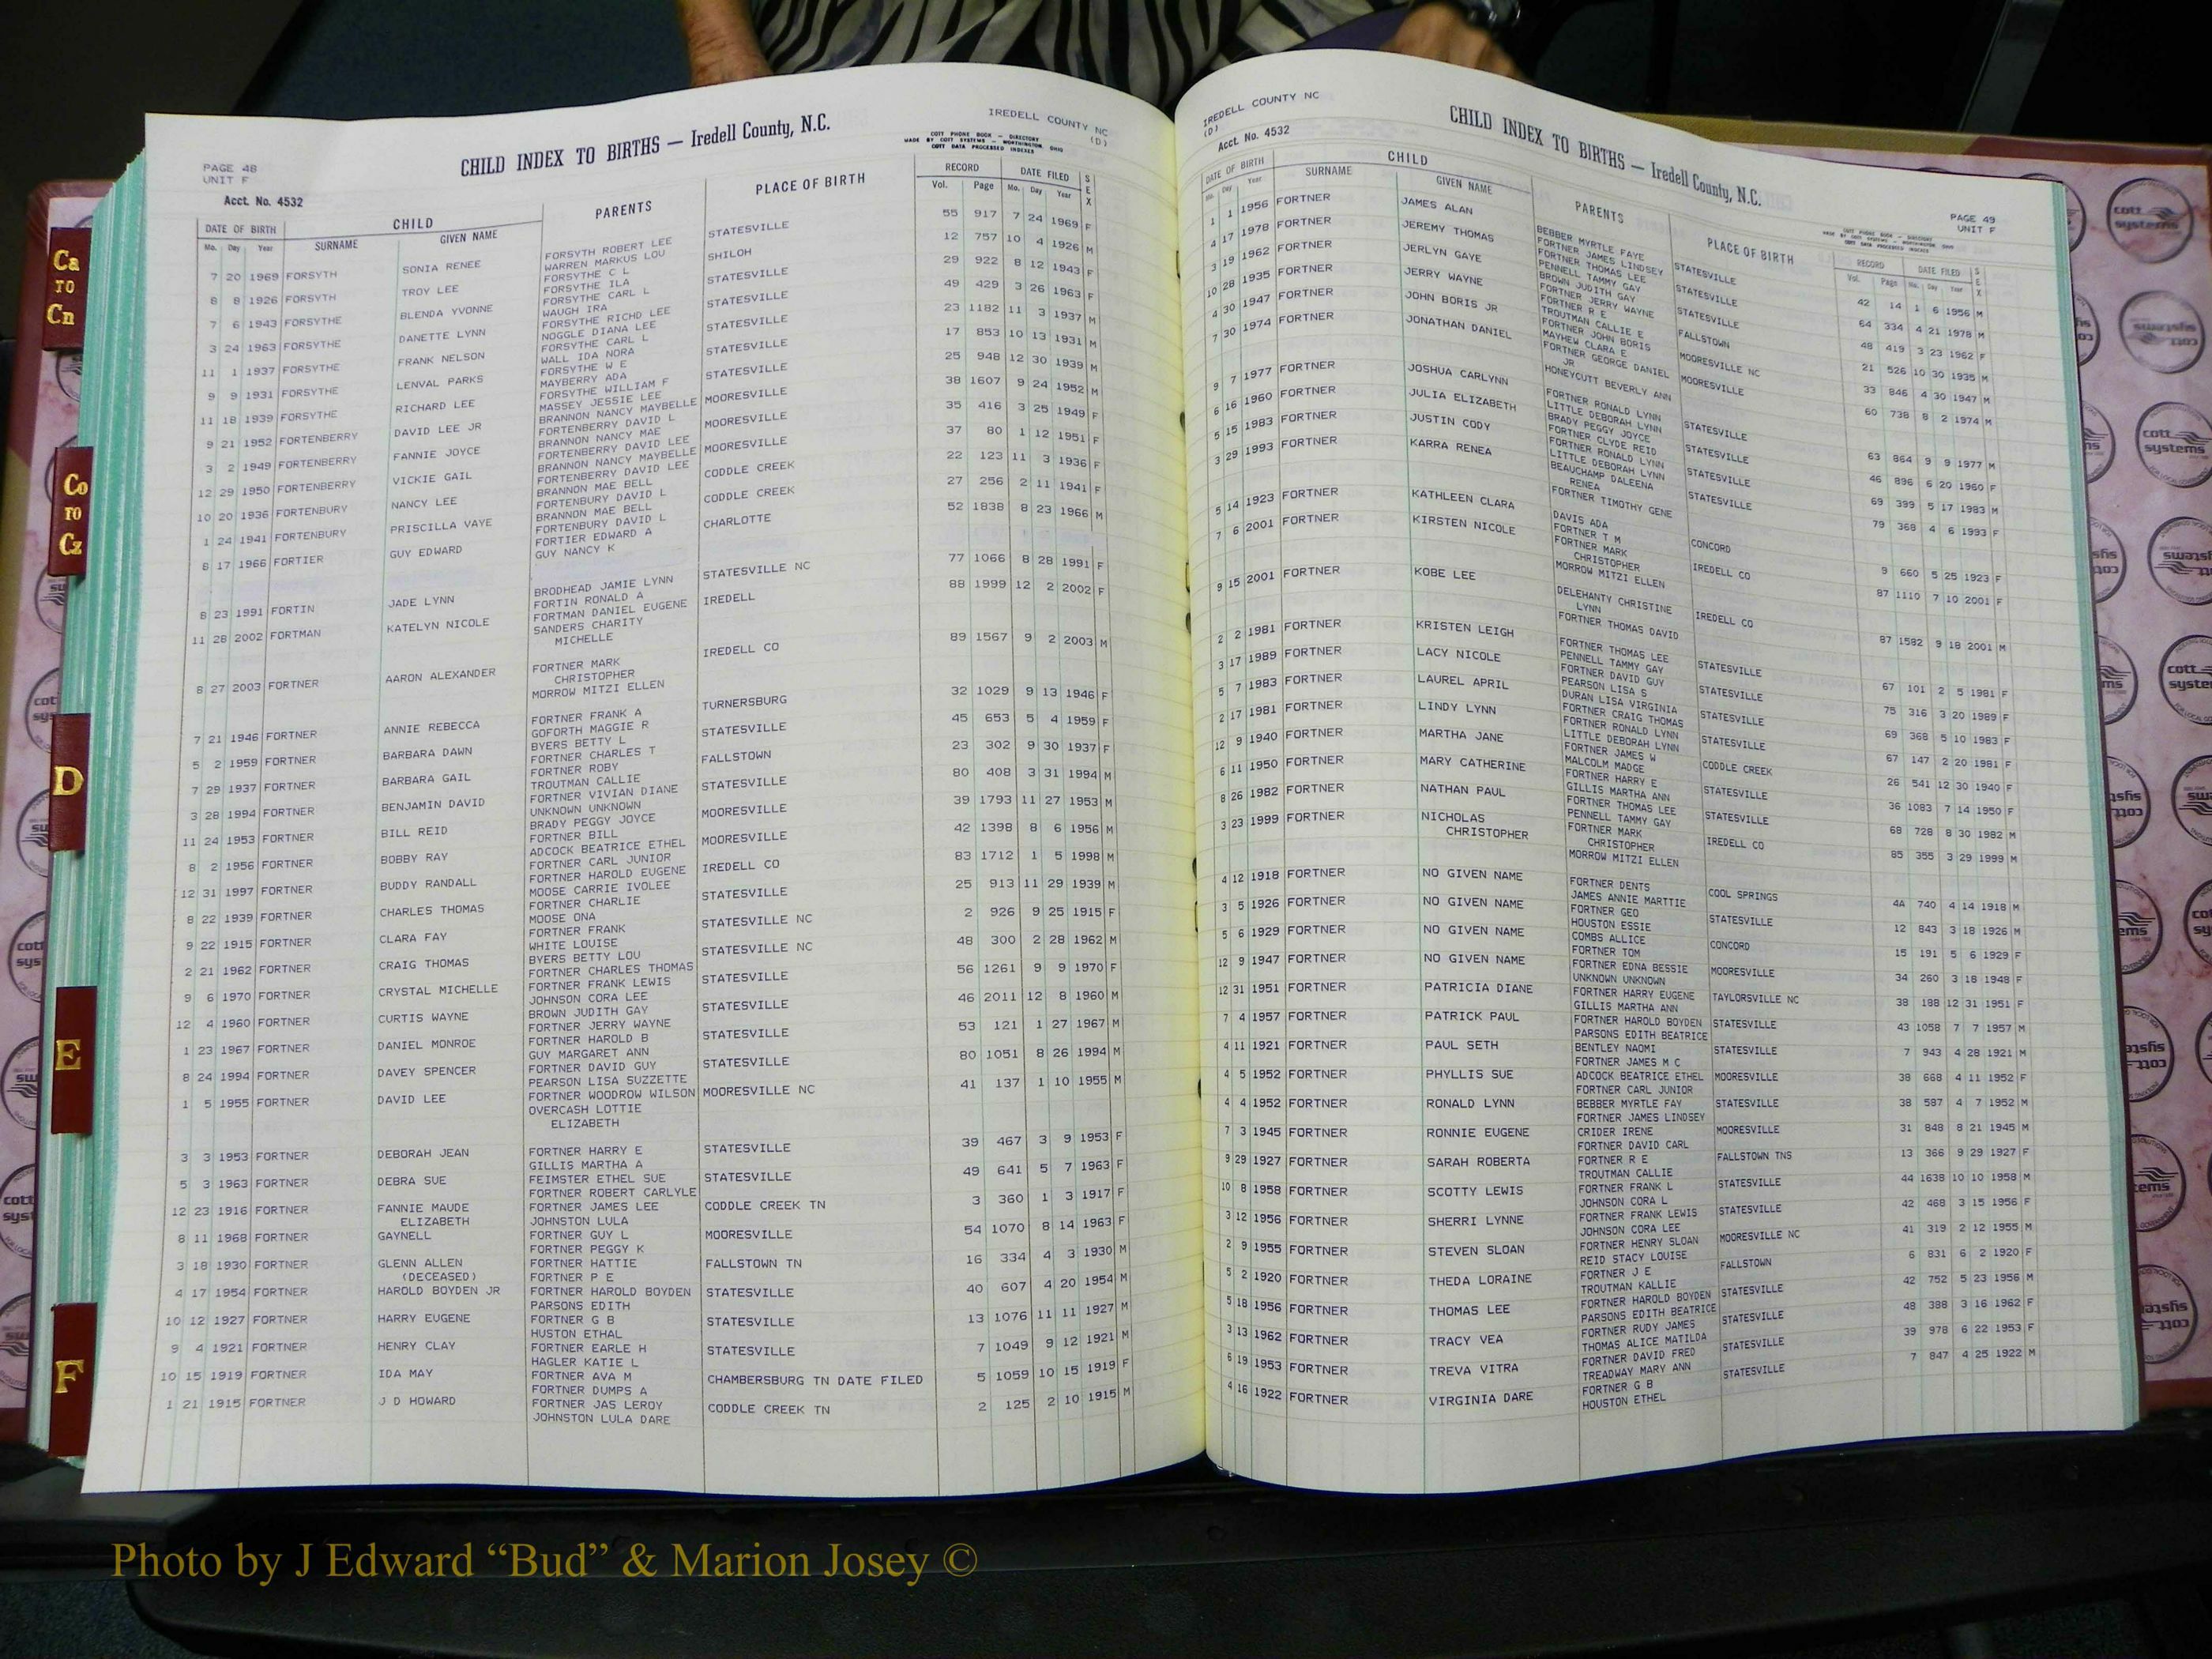 Ca
TO
Cn
Co
TO
Cz
D
E
F
IREDELL COUNTY NC
(D)
CHILD INDEX TO BIRTHS — Iredell County, N.C.
COTT PHONE BOOK — DIRECTORY
MADE BY COTT SYSTEMS — WORTHINGTON, OHIO
COTT DATA PROCESSED INDEXES
PAGE 48
UNIT F
Acct. No. 4532
DATE OF BIRTH CHILD PARENTS PLACE OF BIRTH RECORD DATE FILED SEX
Mo. Day Year SURNAME GIVEN NAME Vol. Page Mo. Day Year
7 20 1969 FORSYTH SONIA RENEE FORSYTH ROBERT LEE STATESVILLE 55 917 7 24 1969 F
WARREN MARKUS LOU
8 8 1926 FORSYTH TROY LEE FORSYTHE C L SHILOH 12 757 10 4 1926 M
FORSYTHE ILA
7 6 1943 FORSYTHE BLENDA YVONNE FORSYTHE CARL L STATESVILLE 29 922 8 12 1943 F
WAUGH IRA
3 24 1963 FORSYTHE DANETTE LYNN FORSYTHE RICHD LEE STATESVILLE 49 429 3 26 1963 F
NOGGLE DIANA LEE
11 1 1937 FORSYTHE FRANK NELSON FORSYTHE CARL L STATESVILLE 23 1182 11 3 1937 M
WALL IDA NORA
9 9 1931 FORSYTHE LENVAL PARKS FORSYTHE W E STATESVILLE 17 853 10 13 1931 M
MAYBERRY ADA
11 18 1939 FORSYTHE RICHARD LEE FORSYTHE WILLIAM F STATESVILLE 25 948 12 30 1939 M
MASSEY JESSIE LEE
9 21 1952 FORTENBERRY DAVID LEE JR BRANNON NANCY MAYBELLE MOORESVILLE 38 1607 9 24 1952 M
FORTENBERRY DAVID L
3 2 1949 FORTENBERRY FANNIE JOYCE BRANNON NANCY MAE MOORESVILLE 35 416 3 25 1949 F
FORTENBERRY DAVID LEE
12 29 1950 FORTENBERRY VICKIE GAIL BRANNON NANCY MAYBELLE MOORESVILLE 37 80 1 12 1951 F
FORTENBERRY DAVID LEE
10 20 1936 FORTENBURY NANCY LEE BRANNON MAE BELL CODDLE CREEK 22 123 11 3 1936 F
FORTENBURY DAVID L
1 24 1941 FORTENBURY PRISCILLA VAYE BRANNON MAE BELL CODDLE CREEK 27 256 2 11 1941 F
FORTENBURY DAVID L
8 17 1966 FORTIER GUY EDWARD FORTIER EDWARD A CHARLOTTE 52 1838 8 23 1966 M
GUY NANCY K
8 23 1991 FORTIN JADE LYNN BRODHEAD JAMIE LYNN STATESVILLE NC 77 1066 8 28 1991 F
FORTIN RONALD A
11 28 2002 FORTMAN KATELYN NICOLE FORTMAN DANIEL EUGENE IREDELL 88 1999 12 2 2002 F
SANDERS CHARITY
MICHELLE
8 27 2003 FORTNER AARON ALEXANDER FORTNER MARK IREDELL CO 89 1567 9 2 2003 M
CHRISTOPHER
MORROW MITZI ELLEN
7 21 1946 FORTNER ANNIE REBECCA FORTNER FRANK A TURNERSBURG 32 1029 9 13 1946 F
GOFORTH MAGGIE R
5 2 1959 FORTNER BARBARA DAWN BYERS BETTY L STATESVILLE 45 653 5 4 1959 F
FORTNER CHARLES T
7 29 1937 FORTNER BARBARA GAIL FORTNER ROBY FALLSTOWN 23 302 9 30 1937 F
TROUTMAN CALLIE
3 28 1994 FORTNER BENJAMIN DAVID FORTNER VIVIAN DIANE STATESVILLE 80 408 3 31 1994 M
UNKNOWN UNKNOWN
11 24 1953 FORTNER BILL REID BRADY PEGGY JOYCE MOORESVILLE 39 1793 11 27 1953 M
FORTNER BILL
8 2 1956 FORTNER BOBBY RAY ADCOCK BEATRICE ETHEL MOORESVILLE 42 1398 8 6 1956 M
FORTNER CARL JUNIOR
12 31 1997 FORTNER BUDDY RANDALL FORTNER HAROLD EUGENE IREDELL CO 83 1712 1 5 1998 M
MOOSE CARRIE IVOLEE
8 22 1939 FORTNER CHARLES THOMAS FORTNER CHARLIE STATESVILLE 25 913 11 29 1939 M
MOOSE ONA
9 22 1915 FORTNER CLARA FAY FORTNER FRANK STATESVILLE NC 2 926 9 25 1915 F
WHITE LOUISE
2 21 1962 FORTNER CRAIG THOMAS BYERS BETTY LOU STATESVILLE NC 48 300 2 28 1962 M
FORTNER CHARLES THOMAS
9 6 1970 FORTNER CRYSTAL MICHELLE FORTNER FRANK LEWIS STATESVILLE 56 1261 9 9 1970 F
JOHNSON CORA LEE
12 4 1960 FORTNER CURTIS WAYNE BROWN JUDITH GAY STATESVILLE 46 2011 12 8 1960 M
FORTNER JERRY WAYNE
1 23 1967 FORTNER DANIEL MONROE FORTNER HAROLD B STATESVILLE 53 121 1 27 1967 M
GUY MARGARET ANN
8 24 1994 FORTNER DAVEY SPENCER FORTNER DAVID GUY STATESVILLE 80 1051 8 26 1994 M
PEARSON LISA SUZZETTE
1 5 1955 FORTNER DAVID LEE FORTNER WOODROW WILSON MOORESVILLE NC 41 137 1 10 1955 M
OVERCASH LOTTIE
ELIZABETH
3 3 1953 FORTNER DEBORAH JEAN FORTNER HARRY E STATESVILLE 39 467 3 9 1953 F
GILLIS MARTHA A
5 3 1963 FORTNER DEBRA SUE FEIMSTER ETHEL SUE STATESVILLE 49 641 5 7 1963 F
FORTNER ROBERT CARLYLE
12 23 1916 FORTNER FANNIE MAUDE FORTNER JAMES LEE CODDLE CREEK TN 3 360 1 3 1917 F
ELIZABETH JOHNSTON LULA
8 11 1968 FORTNER GAYNELL FORTNER GUY L MOORESVILLE 54 1070 8 14 1963 F
FORTNER PEGGY K
3 18 1930 FORTNER GLENN ALLEN FORTNER HATTIE FALLSTOWN TN 16 334 4 3 1930 M
(DECEASED) FORTNER P E
4 17 1954 FORTNER HAROLD BOYDEN JR FORTNER HAROLD BOYDEN STATESVILLE 40 607 4 20 1954 M
PARSONS EDITH
10 12 1927 FORTNER HARRY EUGENE FORTNER G B STATESVILLE 13 1076 11 11 1927 M
HUSTON ETHAL
9 4 1921 FORTNER HENRY CLAY FORTNER EARLE H STATESVILLE 7 1049 9 12 1921 M
HAGLER KATIE L
10 15 1919 FORTNER IDA MAY FORTNER AVA M CHAMBERSBURG TN DATE FILED 5 1059 10 15 1919 F
FORTNER DUMPS A
1 21 1915 FORTNER J D HOWARD FORTNER JAS LEROY CODDLE CREEK TN 2 125 2 10 1915 M
JOHNSTON LULA DARE
IREDELL COUNTY NC
(D)
Acct. No. 4532
CHILD INDEX TO BIRTHS — Iredell County, N.C.
PAGE 49
UNIT F
DATE OF BIRTH CHILD PARENTS PLACE OF BIRTH RECORD DATE FILED SEX
Mo. Day Year SURNAME GIVEN NAME Vol. Page Mo. Day Year
1 1 1956 FORTNER JAMES ALAN BEBBER MYRTLE FAYE STATESVILLE 42 14 1 6 1956 M
FORTNER JAMES LINDSEY
4 17 1978 FORTNER JEREMY THOMAS FORTNER THOMAS LEE STATESVILLE 64 334 4 21 1978 M
PENNELL TAMMY GAY
3 19 1962 FORTNER JERLYN GAYE BROWN JUDITH GAY STATESVILLE 48 419 3 23 1962 F
FORTNER JERRY WAYNE
10 28 1935 FORTNER JERRY WAYNE FORTNER R E FALLSTOWN 21 526 10 30 1935 M
TROUTMAN CALLIE E
4 30 1947 FORTNER JOHN BORIS JR FORTNER JOHN BORIS MOORESVILLE NC 33 846 4 30 1947 M
MAYHEW CLARA E
7 30 1974 FORTNER JONATHAN DANIEL FORTNER GEORGE DANIEL MOORESVILLE 60 738 8 2 1974 M
JR
HONEYCUTT BEVERLY ANN
9 7 1977 FORTNER JOSHUA CARLYNN FORTNER RONALD LYNN STATESVILLE 63 864 9 9 1977 M
LITTLE DEBORAH LYNN
6 16 1960 FORTNER JULIA ELIZABETH BRADY PEGGY JOYCE STATESVILLE 46 896 6 20 1960 F
FORTNER CLYDE REID
5 15 1983 FORTNER JUSTIN CODY FORTNER RONALD LYNN STATESVILLE 69 399 5 17 1983 M
LITTLE DEBORAH LYNN
3 29 1993 FORTNER KARRA RENEA BEAUCHAMP DALEENA STATESVILLE 79 368 4 6 1993 F
RENEA
FORTNER TIMOTHY GENE
5 14 1923 FORTNER KATHLEEN CLARA DAVIS ADA CONCORD 9 660 5 25 1923 F
FORTNER T M
7 6 2001 FORTNER KIRSTEN NICOLE FORTNER MARK IREDELL CO 87 1110 7 10 2001 F
CHRISTOPHER
MORROW MITZI ELLEN
9 15 2001 FORTNER KOBE LEE DELEHANTY CHRISTINE IREDELL CO 87 1582 9 18 2001 M
LYNN
FORTNER THOMAS DAVID
2 2 1981 FORTNER KRISTEN LEIGH FORTNER THOMAS LEE STATESVILLE 67 101 2 5 1981 F
PENNELL TAMMY GAY
3 17 1989 FORTNER LACY NICOLE FORTNER DAVID GUY STATESVILLE 75 316 3 20 1989 F
PEARSON LISA S
5 7 1983 FORTNER LAUREL APRIL DURAN LISA VIRGINIA STATESVILLE 69 368 5 10 1983 F
FORTNER CRAIG THOMAS
2 17 1981 FORTNER LINDY LYNN FORTNER RONALD LYNN STATESVILLE 67 147 2 20 1981 F
LITTLE DEBORAH LYNN
12 9 1940 FORTNER MARTHA JANE FORTNER JAMES W CODDLE CREEK 26 541 12 30 1940 F
MALCOLM MADGE
6 11 1950 FORTNER MARY CATHERINE FORTNER HARRY E STATESVILLE 36 1083 7 14 1950 F
GILLIS MARTHA ANN
8 26 1982 FORTNER NATHAN PAUL FORTNER THOMAS LEE STATESVILLE 68 728 8 30 1982 M
PENNELL TAMMY GAY
3 23 1999 FORTNER NICHOLAS FORTNER MARK IREDELL CO 85 355 3 29 1999 M
CHRISTOPHER CHRISTOPHER
MORROW MITZI ELLEN
4 12 1918 FORTNER NO GIVEN NAME FORTNER DENTS COOL SPRINGS 4A 740 4 14 1918 M
JAMES ANNIE MARTTIE
3 5 1926 FORTNER NO GIVEN NAME FORTNER GEO STATESVILLE 12 843 3 18 1926 M
HOUSTON ESSIE
5 6 1929 FORTNER NO GIVEN NAME COMBS ALLICE CONCORD 15 191 5 6 1929 F
FORTNER TOM
12 9 1947 FORTNER NO GIVEN NAME FORTNER EDNA BESSIE MOORESVILLE 34 260 3 18 1948 F
UNKNOWN UNKNOWN
12 31 1951 FORTNER PATRICIA DIANE FORTNER HARRY EUGENE TAYLORSVILLE NC 38 188 12 31 1951 F
GILLIS MARTHA ANN
7 4 1957 FORTNER PATRICK PAUL FORTNER HAROLD BOYDEN STATESVILLE 43 1058 7 7 1957 M
PARSONS EDITH BEATRICE
4 11 1921 FORTNER PAUL SETH BENTLEY NAOMI STATESVILLE 7 943 4 28 1921 M
FORTNER JAMES M C
4 5 1952 FORTNER PHYLLIS SUE ADCOCK BEATRICE ETHEL MOORESVILLE 38 668 4 11 1952 F
FORTNER CARL JUNIOR
4 4 1952 FORTNER RONALD LYNN BEBBER MYRTLE FAY STATESVILLE 38 587 4 7 1952 M
FORTNER JAMES LINDSEY
7 3 1945 FORTNER RONNIE EUGENE CRIDER IRENE MOORESVILLE 31 848 8 21 1945 M
FORTNER DAVID CARL
9 29 1927 FORTNER SARAH ROBERTA FORTNER R E FALLSTOWN TNS 13 366 9 29 1927 F
TROUTMAN CALLIE
10 8 1958 FORTNER SCOTTY LEWIS FORTNER FRANK L STATESVILLE 44 1638 10 10 1958 M
JOHNSON CORA L
3 12 1956 FORTNER SHERRI LYNNE FORTNER FRANK LEWIS STATESVILLE 42 468 3 15 1956 F
JOHNSON CORA LEE
2 9 1955 FORTNER STEVEN SLOAN FORTNER HENRY SLOAN MOORESVILLE NC 41 319 2 12 1955 M
REID STACY LOUISE
5 2 1920 FORTNER THEDA LORAINE FORTNER J E FALLSTOWN 6 831 6 2 1920 F
TROUTMAN KALLIE
5 18 1956 FORTNER THOMAS LEE FORTNER HAROLD BOYDEN STATESVILLE 42 752 5 23 1956 M
PARSONS EDITH BEATRICE
3 13 1962 FORTNER TRACY VEA FORTNER RUDY JAMES STATESVILLE 48 388 3 16 1962 F
THOMAS ALICE MATILDA
6 19 1953 FORTNER TREVA VITRA FORTNER DAVID FRED STATESVILLE 39 978 6 22 1953 F
TREADWAY MARY ANN
4 16 1922 FORTNER VIRGINIA DARE FORTNER G B STATESVILLE 7 847 4 25 1922 M
HOUSTON ETHEL
cott
systems
Photo by J Edward “Bud” & Marion Josey ©